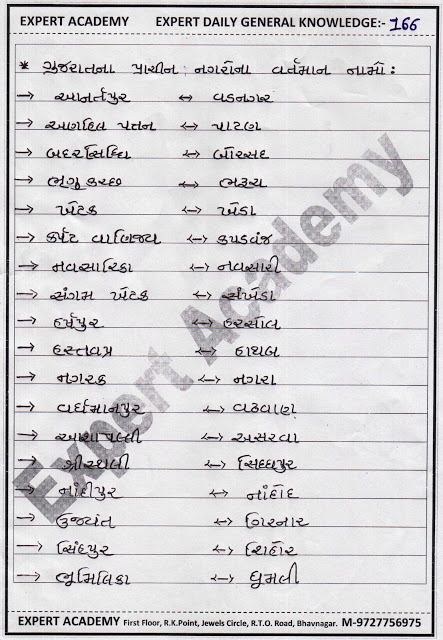 EXPERT ACADEMY EXPERT DAILY GENERAL KNOWLEDGE:- 166
* ગુજરાતના પ્રાચીન નગરોના વર્તમાન નામો :
→ આનર્તપુર ↔ વડનગર
→ અણહિલ પત્તન ↔ પાટણ
→ બદરસિધ્ધિ ↔ બોરસદ
→ ભૃગુકચ્છ ↔ ભરૂચ
→ ખેટક ↔ ખેડા
→ કર્પટ વાણિજ્ય ↔ કપડવંજ
→ નવસારિકા ↔ નવસારી
→ સંગમ ખેટક ↔ સંખેડા
→ હર્ષપુર ↔ હરસોલ
→ હસ્તવપ્ર ↔ હાથબ
→ નગરક ↔ નગરા
→ વર્ધમાનપુર ↔ વઢવાણ
→ આશાપલ્લી ↔ અસારવા
→ શ્રીસ્થલી ↔ સિધ્ધપુર
→ નાંદીપુર ↔ નાંદોદ
→ ઉજ્યંત ↔ ગિરનાર
→ સિંહપુર ↔ શિહોર
→ ભૂમિલિકા ↔ ઘુમલી
Expert Academy
EXPERT ACADEMY First Floor, R.K.Point, Jewels Circle, R.T.O. Road, Bhavnagar. M-9727756975